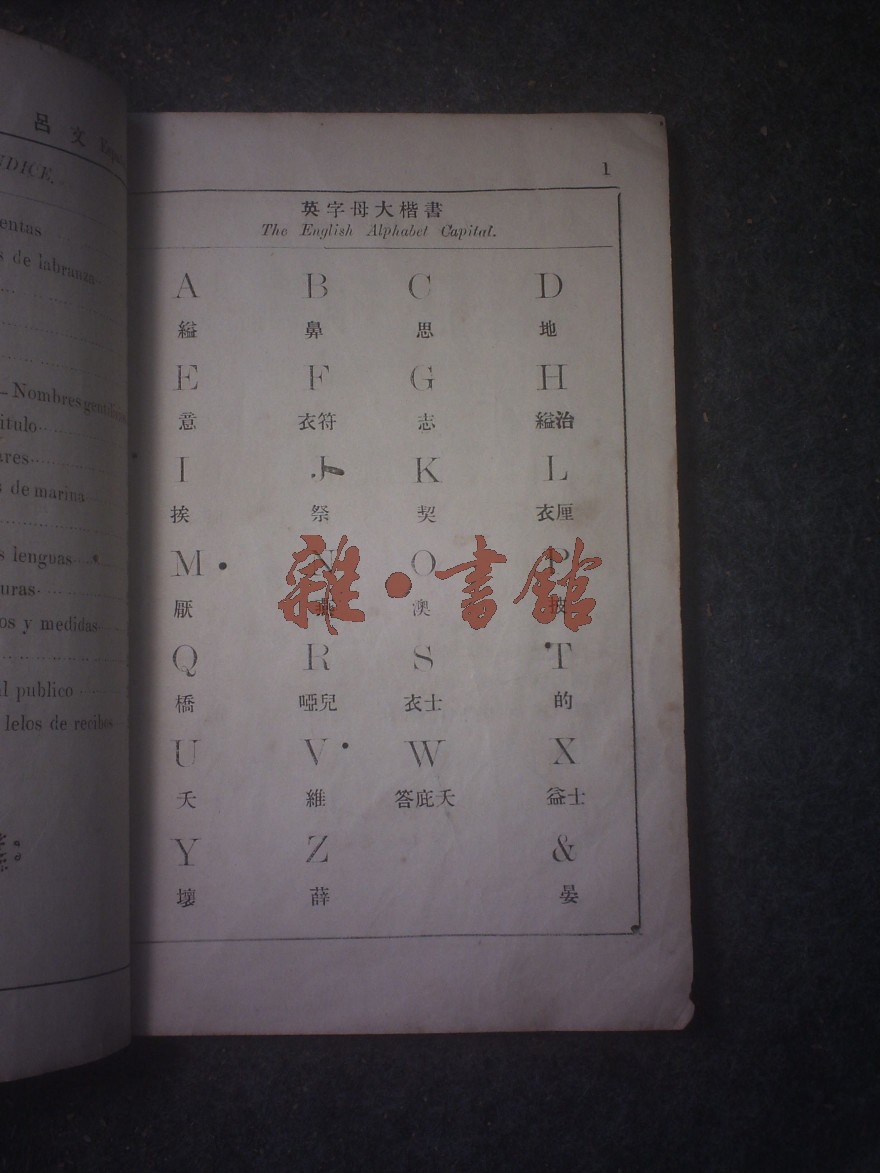 呂文
NDICE.
entas
s de labranza
Nombres gentilicios
itulo
ares
s de marina
s lenguas
uras
os y medidas
al publico
lelos de recibos
1
英字母大楷書
The English Alphabet Capital.
A B C D
縊 鼻 思 地
E F G H
意 衣符 志 縊治
I J K L
挨 祭 契 衣厘
M N O P
厭 燕 澳 披
Q R S T
橋 啞兒 衣士 的
U V W X
夭 維 答庇夭 益士
Y Z &
壞 薛 晏
雜·書館